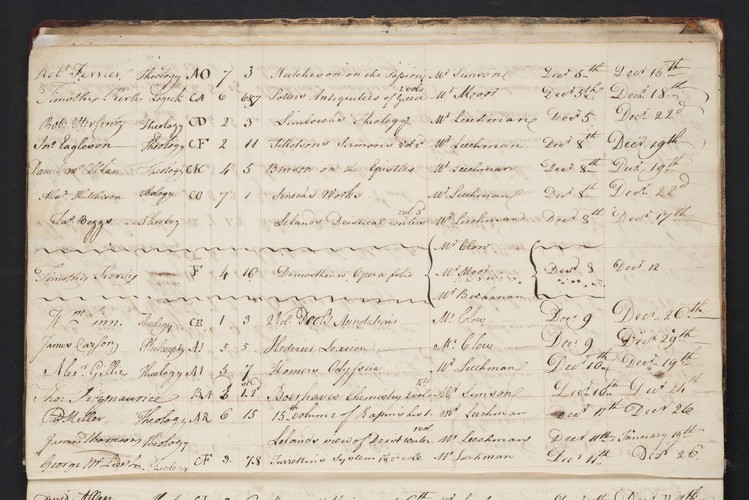 Robt Ferrier Theology AO 7 3 Hutcheson on the Passions Mr Simson Decr 5th Decr 15th
Timothy Logick CA 6 6&7 Potters Antiquities of Greece 2 vols Mr Moor Decr 5th Decr 18th
Robt Theology CD 2 3 Limborchs Theology Mr Leechman Decr 5 Decr 22d
Jno Eagleson Theology CF 2 11 Tillotsons Sermons Mr Leechman Decr 8th Decr 19th
Daniel Theology CK 4 5 Benson on the Epistles Mr Leechman Decr 8th Decr 19th
Alexr Hutchison Theology CO 7 1 Senecas Works Mr Leechman Decr 8th Decr 22d
Jas Beggs Theology Lelands Deistical writers vol 3 Mr Leechman Decr 8th Decr 17th
Mr Clow
Timothy F 4 16 Demosthenis Opera folio Mr Moor Decr 8 Decr 12
Mr Buchanan
Wm Theology CE 1 3 2 Vol Mr Clow Decr 9 Decr 26th
James Carson Philosophy AI 5 5 Hederici Lexicon Mr Clow Decr 9 Decr 29th
Alexr Gillies Theology AI 3 7 Homers Odyssea Mr Leechman Decr 10th Decr 19th
Tho: Fitzmaurice BA Boerhaves Chemistry Mr Simson Decr 10th Decr 24th
Miller Theology AR 6 15 15th volume of Rapins hist. Mr Leechman Decr 11th Decr 26
Theology Lelands view of Deist writers Mr Leechman Decr 11th January 19th
George Theology CF 3 7.8 Turretins System Mr Leechman Decr 11th Decr 26
Allen